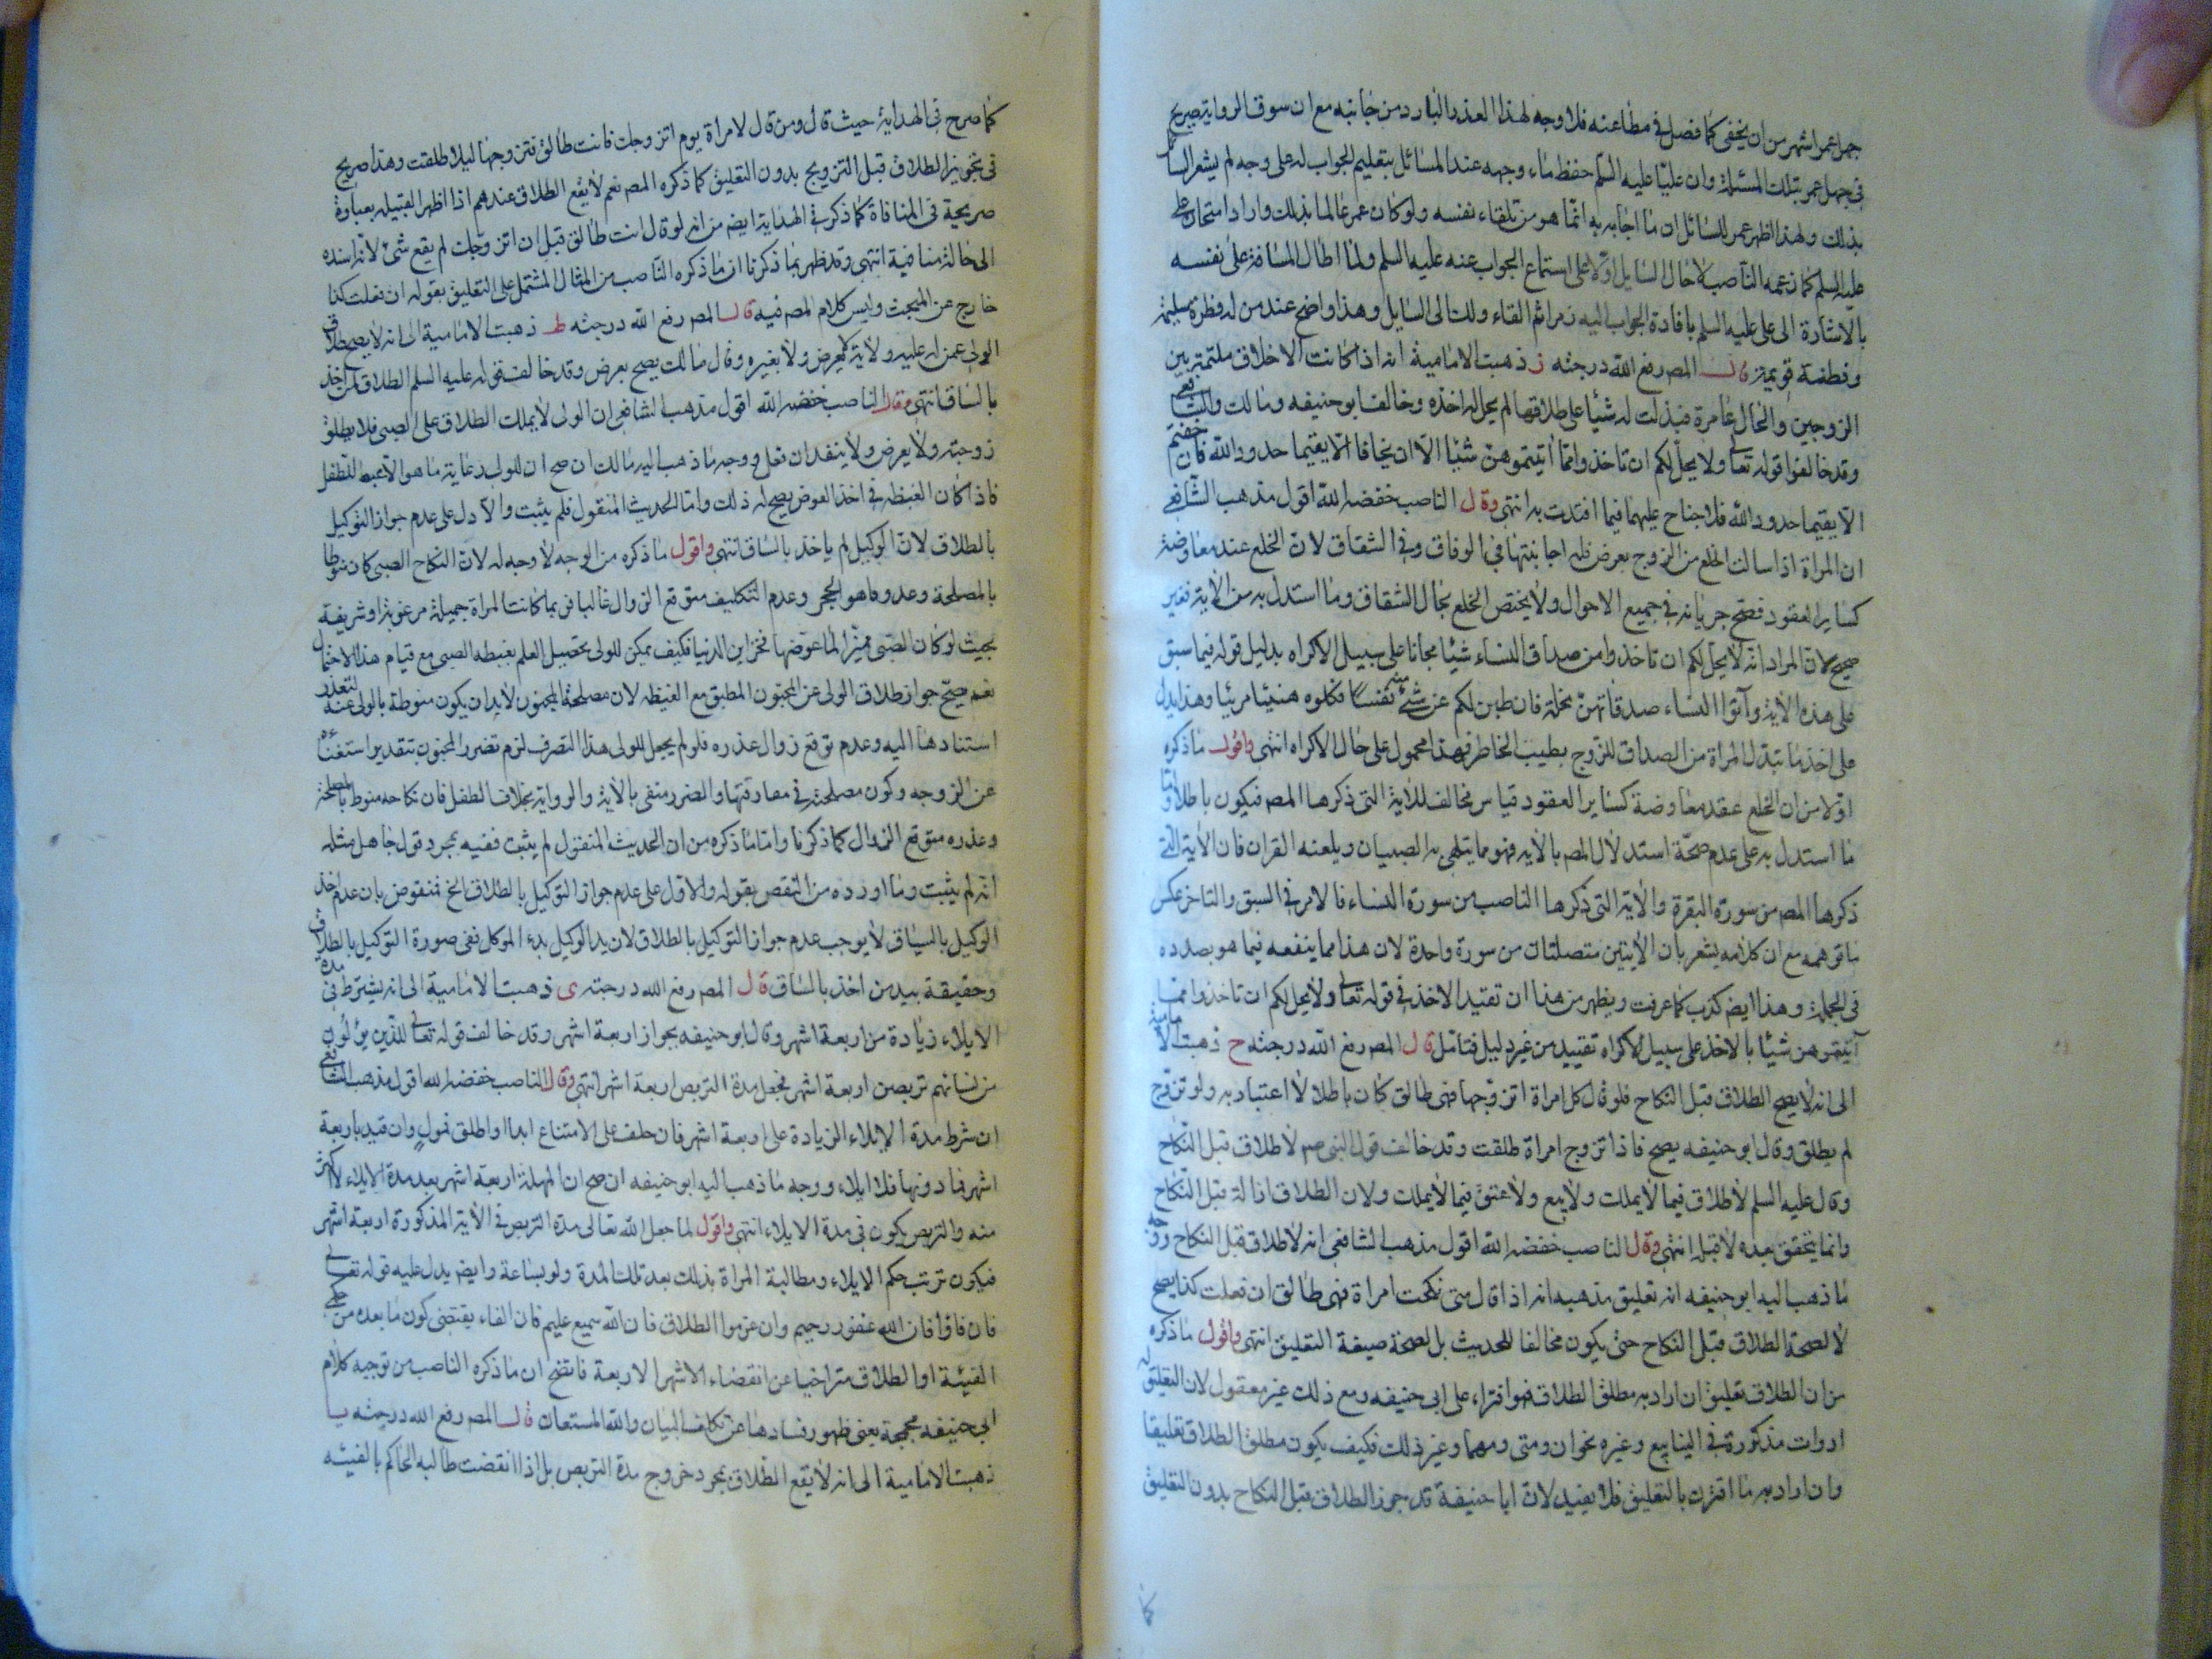 جهل عمر اشهر من ان يخفى كما فصل في مطاعنه فلا وجه لهذا العذر البارد من جانبه مع ان سوق الرواية صريح
في جهل عمر بتلك المسئلة وان عليّا عليه السلم حفظ ماء وجهه عند المسائل بتعليم الجواب له على وجه لم يشعر السا
بذلك ولهذا اظهر عمر للسائل ان ما اجابه به انما هو من تلقاء نفسه ولو كان عمر عالما بذلك واراد امتحان علي
عليه السلم كما زعمه الناصب لاحال السايل اولا على استماع الجواب عنه عليه السلم ولما اطال المسافة على نفسه
بالاشارة الى علي عليه السلم بافادة الجواب اليه ثم القاء ذلك الى السايل وهذا واضح عند من له فطرة سليمة
وفطنة قويمة قال المصـ رفع الله درجته ز ذهبت الامامية انه اذا كانت الاخلاق ملتئمة بين
الزوجين والحال عامرة فبذلت له شيئا على طلاقها لم يحل له اخذه وخالف ابو حنيفه ومالك والشافعي
وقد خالفوا قوله تعالى ولا يحل لكم ان تاخذوا مما آتيتموهن شيئا الا ان يخافا الا يقيما حدود الله فان خفتم
الا يقيما حدود الله فلا جناح عليهما فيما افتدت به انتهى وقال الناصب خفضه الله اقول مذهب الشافعي
ان المراة اذا سالت الخلع من الزوج بعوض فله اجابتها في الوفاق وفي الشقاق لان الخلع عند معاوضة
كساير العقود فصح جريانه في جميع الاحوال ولا يختص الخلع بحال الشقاق وما استدل به من الاية فغير
صحيح لان المراد انه لا يحل لكم ان تاخذوا من صداق النساء شيئا مجانا على سبيل الاكراه بدليل قوله فيما سبق
على هذه الاية وآتوا النساء صدقاتهن نحلة فان طبن لكم عن شئ منه نفسا فكلوه هنيئا مريئا وهذا يدل
على اخذ ما تبذل المراة من الصداق للزوج بطيب الخاطر فهذا محمول على حال الاكراه انتهى واقول ما ذكره
اولا من ان الخلع عقد معاوضة كساير العقود قياس مخالف للاية التي ذكرها المصـ فيكون باطلا واما
ما استدل به على عدم صحة استدلال المصـ بالاية فهو مما يتلهى به الصبيان ويلعنه القران فان الاية التي
ذكرها المصـ من سورة البقرة والاية التي ذكرها الناصب من سورة النساء فالامر في السبق والتاخر عكس
ما توهمه مع ان كلامه يشعر بان الايتين متصلتان من سورة واحدة لان هذا مما ينفعه فيما هو بصدده
في الجملة وهذا ايضـ كذب كما عرفت ويظهر من هذا ان تقييد الاخذ في قوله تعالى ولا يحل لكم ان تاخذوا مما
آتيتموهن شيئا بالاخذ على سبيل الاكراه تقييد من غير دليل فتامل قال المصـ رفع الله درجته ح ذهبت الامامية
الى انه لا يصح الطلاق قبل النكاح فلو قال كل امراة اتزوجها فهي طالق كان باطلا لا اعتبار به ولو تزوج
لم يطلق وقال ابو حنيفه يصح فاذا تزوج امراة طلقت وقد خالف قول النبي صم لا طلاق قبل النكاح
وقال عليه السلم لا طلاق فيما لا يملك ولا بيع ولا عتق فيما لا يملك ولان الطلاق ازالة قبل النكاح
وانما يتحقق بعده لا قبله انتهى وقال الناصب خفضه الله اقول مذهب الشافعي انه لا طلاق قبل النكاح ووجه
ما ذهب اليه ابو حنيفه انه تعليق مذهبه انه اذا قال متى نكحت امراة فهي طالق ان فعلت كذا يصح
لا لصحة الطلاق قبل النكاح حتى يكون مخالفا للحديث بل لصحة صيغة التعليق انتهى واقول ما ذكره
من ان الطلاق تعليق ان اراد به مطلق الطلاق فهو افتراء على ابي حنيفه ومع ذلك غير معقول لان التعليق له
ادوات مذكورة في الينابيع وغيره نحو ان ومتى ومهما وغير ذلك فكيف يكون مطلق الطلاق تعليقا
وان اراد به ما اقترن بالتعليق فلا يفيد لان ابا حنيفة قد جوز الطلاق قبل النكاح بدون التعليق
كما
كما صرح في الهداية حيث قال ومن قال لامراة يوم اتزوجك فانت طالق فتزوجها ليلا طلقت وهذا صريح
في تجويز الطلاق قبل التزويج بدون التعليق كما ذكره المصـ نعم لا يقع الطلاق عندهم اذا اظهر القبلية بعبارة
صريحة في المنافاة كما ذكر في الهداية ايضـ من انه لو قال انت طالق قبل ان اتزوجك لم يقع شئ لانه اسنده
الى حالة منافية انتهى وقد ظهر بما ذكرنا ان ما ذكره الناصب من المثال المشتمل على التعليق بقوله ان فعلت كذا
خارج عن المبحث وليس كلام المصـ فيه قال المصـ رفع الله درجته ط ذهبت الامامية الى انه لا يصح طلاق
الولي عمن له عليه ولاية لا بعوض ولا بغيره وقال مالك يصح بعوض وقد خالف قوله عليه السلم الطلاق لمن اخذ
بالساق انتهى وقال الناصب خفضه الله اقول مذهب الشافعي ان الولي لا يملك الطلاق على الصبي فلا يطلق
زوجته ولا يعوض ولا ينفذ ان فعل ووجه ما ذهب اليه مالك ان صح ان للولي رعاية ما هو الاغبط للطفل
فاذا كان الغبطه في اخذ العوض يصح له ذلك واما الحديث المنقول فلم يثبت والا دل على عدم جواز التوكيل
بالطلاق لان الوكيل لم ياخذ بالساق انتهى واقول ما ذكره من الوجه لا وجه له لان النكاح الصبي كان منوطا
بالمصلحة وعذره ما هو الحجر وعدم التكليف متوقع الزوال غالبا فربما كانت المراة جميلة مرغوبة او شريفة
بحيث لو كان الصبي مميزا لما عوضها بخزاين الدنيا فكيف يمكن للولي تحصيل العلم بغبطه الصبي مع قيام هذا الاحتمال
نعم صح جواز طلاق الولي عن المجنون المطبق مع الغبطه لان مصلحة المجنون لابد ان يكون منوطة بالولي عنه لتعذر
استنادها اليه وعدم توقع زوال عذره فلو لم يجعل للولي هذا التصرف لزم تضرر المجنون بتقدير استغنائه
عن الزوجه وكون مصلحته في مفارقتها والضرر منفي بالاية والرواية بخلاف الطفل فان نكاحه منوط بالمصلحة
وعذره متوقع الزوال كما ذكرنا واما ما ذكره من ان الحديث المنقول لم يثبت ففيه بمجرد قول جاهل مثله
انه لم يثبت وما اورده من النقض بقوله والا دل على عدم جواز التوكيل بالطلاق الخ فمنقوض بان عدم اخذ
الوكيل بالساق لا يوجب عدم جواز التوكيل بالطلاق لان يد الوكيل يد الموكل ففي صورة التوكيل بالطلاق
وحقيقة بيد من اخذ بالساق قال المصـ رفع الله درجته ى ذهبت الامامية الى انه يشترط في مدة
الايلاء زيادة من اربعة اشهر وقال ابو حنيفه يجواز اربعة اشهر وقد خالف قوله تعالى للذين يؤلون
من نسائهم تربص اربعة اشهر فجعل مدة التربص اربعة اشهر انتهى وقال الناصب خفضه الله اقول مذهب الشافعي
ان شرط مدة الايلاء الزيادة على اربعة اشهر فان حلف على الامتناع ابدا او اطلق فمول وان قيد باربعة
اشهر فما دونها فلا ايلاء ووجه ما ذهب اليه ابو حنيفه ان صح ان المهلة اربعة اشهر بعد مدة الايلاء لا اكثر
منه والتربص يكون في مدة الايلاء انتهى واقول لما جعل الله تعالى مدة التربص في الاية المذكورة اربعة اشهر
فيكون ترتب حكم الايلاء ومطالبة المراة بذلك بعد تلك المدة ولو بساعة وايضـ يدل عليه قوله تعالى
فان فاؤا فان الله غفور رحيم وان عزموا الطلاق فان الله سميع عليم فان الفاء يقتضي كون ما بعده من حكم
الفيئة او الطلاق متراخيا عن انقضاء الاشهر الاربعة فاتضح ان ما ذكره الناصب من توجيه كلام
ابي حنيفه مجمجمة يغني ظهور فسادها عن تكلف البيان والله المستعان قال المصـ رفع الله درجته يا
ذهبت الامامية الى انه لا يقع الطلاق بمجرد خروج مدة التربص بل اذا انقضت طالبه الحاكم بالفيئه